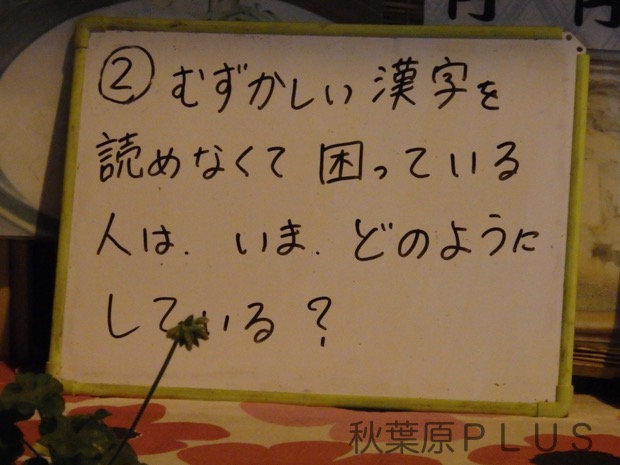 ② むずかしい漢字を
読めなくて 困っている
人は. いま. どのように
している?
秋葉原PLUS